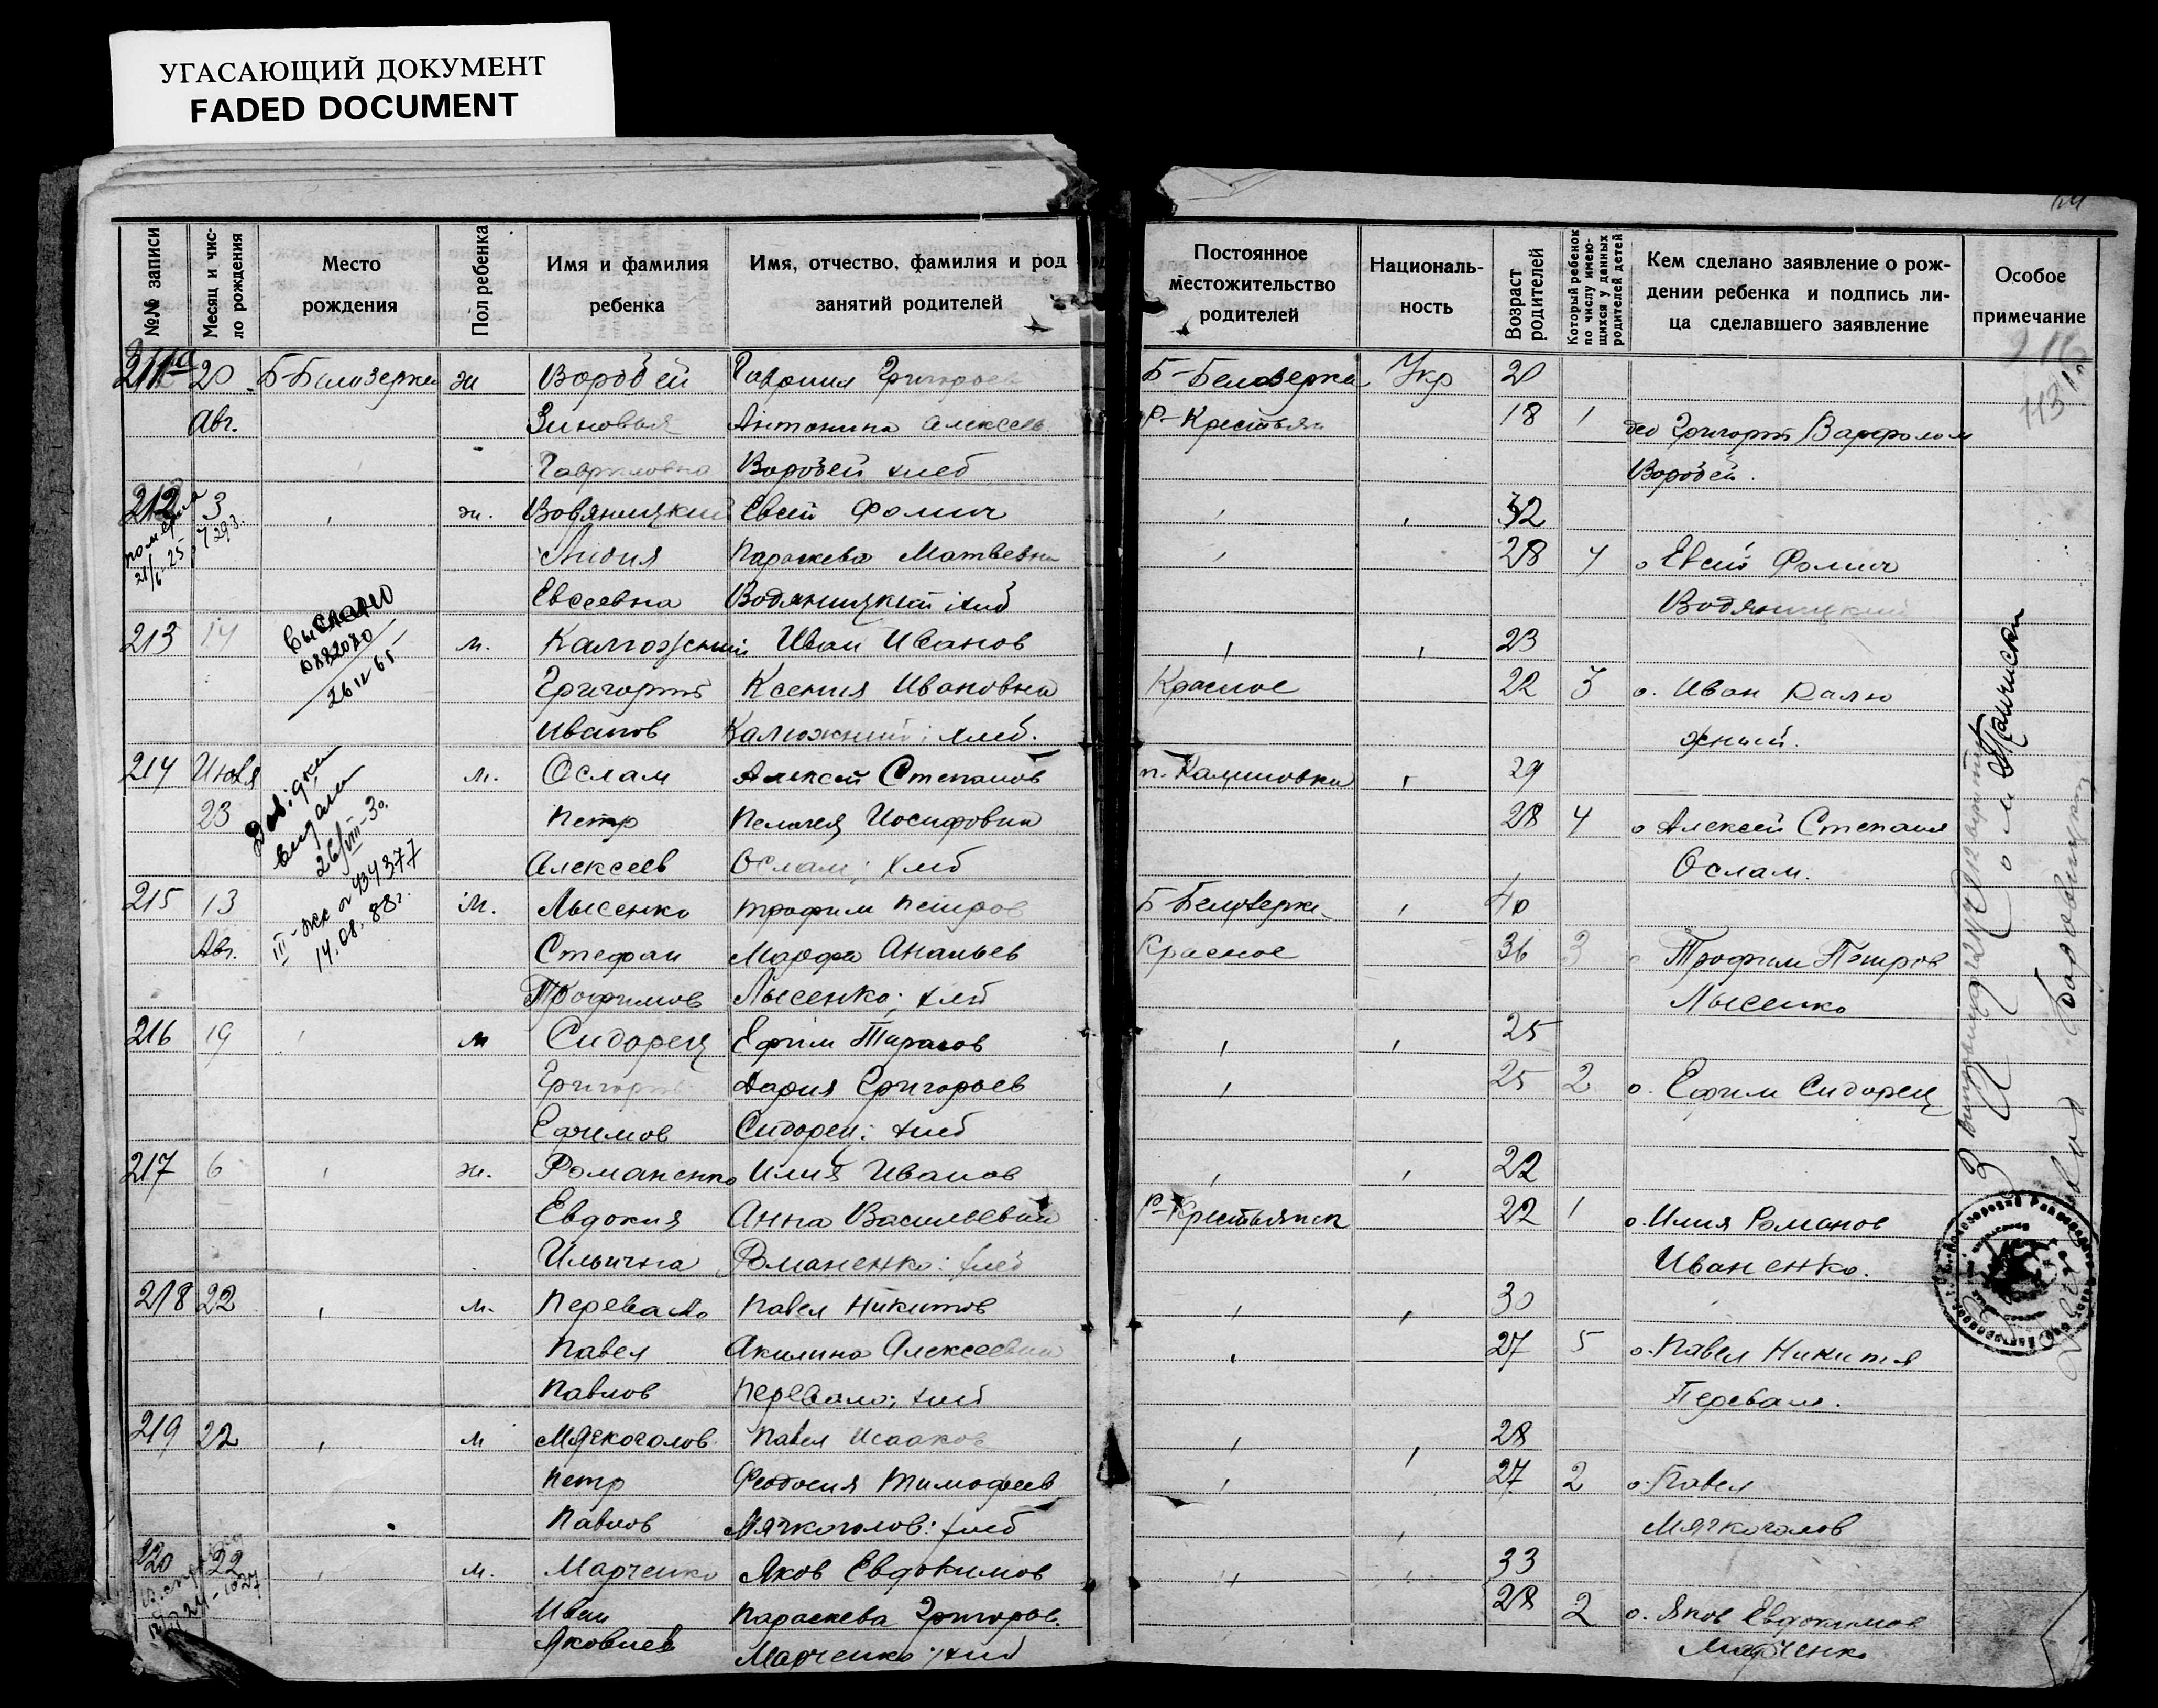 УГАСАЮЩИЙ ДОКУМЕНТ
FADED DOCUMENT
№№ записи
Месяц и чис-
ло рождения
Место
рождения
Пол ребенка
Имя и фамилия
ребенка
Имя, отчество, фамилия и род
занятий родителей
Постоянное
местожительство
родителей
Националь-
ность
Возраст
родителей
Который ребенок
по числу имею-
щихся у данных
родителей детей
Кем сделано заявление о рож-
дении ребенка и подпись ли-
ца сделавшего заявление
Особое
примечание
211 20 Б-Белозерка ж Воробей Григорьев Б-Белозерка Укр 20
Авг. Зиновья Антонина Алексеев Р-Крестьян 18 1 Григорий Варфолом
Гавриловна Воробей хлеб Воробей.
212 3 ж. Евсей Фомич 32
Лидия Параскева Матвевна 28 4 о Евсей Фомич
Евсеевна Водяницкий хлеб Водяницкий
213 14 м. Калюжний Иван Иванов 23
Григорий Ксения Ивановна Красное 22 3 о. Иван Калю
Иванов Калюжний; хлеб. жный.
214 Июля м. Ослам Алексей Степанов п. Калиновка 29
23 Петр Пелагея Иосифовна 28 4 о Алексей Степания
Алексеев Ослам; хлеб Ослам.
215 13 м. Лысенко Трофим Петров Б-Белозерка 40
Авг. Стефан Марфа Ананьев Красное 36 3 Трофим Петров
Трофимов Лысенко; хлеб Лысенко
216 19 м Сидорец Ефим Тарасов 25
Григорий Дария Григорьев 25 2 о. Ефим Сидорец
Ефимов Сидорец; хлеб
217 6 ж. Романенко Илия Иванов 22
Евдокия Анна Васильевна Р-Крестьянск 22 1 о. Илия Романов
Ильична Романенко: хлеб Иваненко.
218 22 м. Перевало Павел Никитов 30
Павел Акилина Алексеевна 27 5 о. Павел Никития
Павлов Перевало; хлеб Перевало.
219 22 м Мягкоголов Павел Исааков 28
Петр Феодосия Тимофеев 27 2 о. Павел
Павлов Мягкоголов: хлеб Мягкоголов
220 22 м. Марченко Яков Евдокимов 33
Иван Параскева Григоров. 28 2 о. Яков Евдокимов
Яковлев Марченко; хлеб Марченко
выслано
26 65
Довідки
видали
26/VIII-30.
III-жс № 434377
14.08.88г.